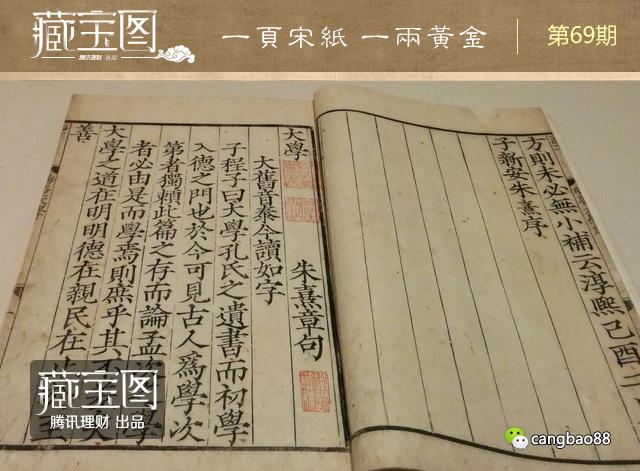 藏宝图
腾讯理财·出品
一頁宋紙 一兩黃金
第69期
方則未必無小補云淳熙己酉二
子新安朱熹序
大學 朱熹章句
大舊音泰今讀如字
子程子曰大學孔氏之遺書而初學
入德之門也於今可見古人爲學次
第者獨賴此篇之存而論孟次學
者必由是而學焉則庶乎其不矣
大學之道在明明德在親民在至
善
藏宝图
腾讯理财 出品
cangbao88